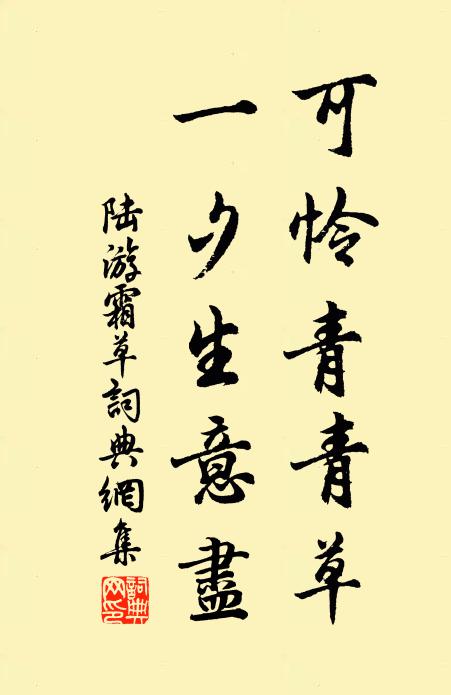 可怜青青草
一夕生意盡
陆游霜草詞典網集
詞典网印